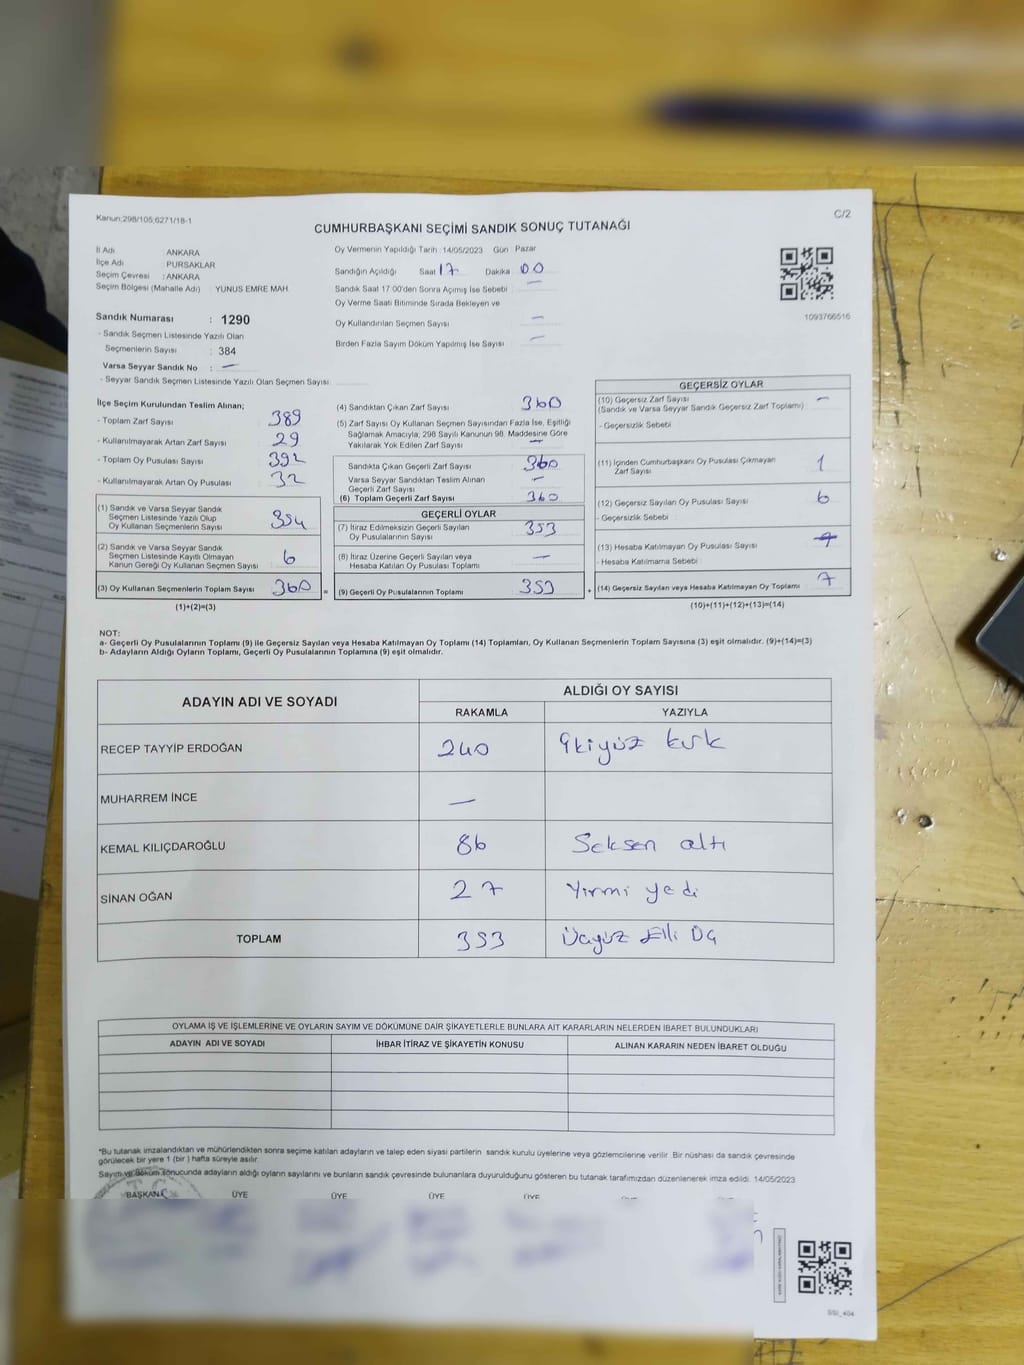 Kanun;298/105;6271/18-1
C/2
CUMHURBAŞKANI SEÇİMİ SANDIK SONUÇ TUTANAĞI
İl Adı : ANKARA
İlçe Adı : PURSAKLAR
Seçim Çevresi : ANKARA
Seçim Bölgesi (Mahalle Adı) : YUNUS EMRE MAH.
Oy Vermenin Yapıldığı Tarih : 14/05/2023 Gün : Pazar
Sandığın Açıldığı Saat 17 Dakika 00
Sandık Saat 17:00'den Sonra Açımış İse Sebebi : —
Oy Verme Saati Bitiminde Sırada Bekleyen ve
Oy Kullandırılan Seçmen Sayısı : —
Birden Fazla Sayım Döküm Yapılmış İse Sayısı : —
1093766516
Sandık Numarası : 1290
- Sandık Seçmen Listesinde Yazılı Olan
Seçmenlerin Sayısı : 384
Varsa Seyyar Sandık No : —
- Seyyar Sandık Seçmen Listesinde Yazılı Olan Seçmen Sayısı :
İlçe Seçim Kurulundan Teslim Alınan;
- Toplam Zarf Sayısı : 389
- Kullanılmayarak Artan Zarf Sayısı : 29
- Toplam Oy Pusulası Sayısı : 392
- Kullanılmayarak Artan Oy Pusulası : 32
(1) Sandık ve Varsa Seyyar Sandık
Seçmen Listesinde Yazılı Olup
Oy Kullanan Seçmenlerin Sayısı : 354
(2) Sandık ve Varsa Seyyar Sandık
Seçmen Listesinde Kayıtlı Olmayan
Kanun Gereği Oy Kullanan Seçmen Sayısı : 6
(3) Oy Kullanan Seçmenlerin Toplam Sayısı : 360
(1)+(2)=(3)
(4) Sandıktan Çıkan Zarf Sayısı : 360
(5) Zarf Sayısı Oy Kullanan Seçmen Sayısından Fazla İse, Eşitliği
Sağlamak Amacıyla, 298 Sayılı Kanunun 98. Maddesine Göre
Yakılarak Yok Edilen Zarf Sayısı : —
Sandıkta Çıkan Geçerli Zarf Sayısı : 360
Varsa Seyyar Sandıktan Teslim Alınan
Geçerli Zarf Sayısı : —
(6) Toplam Geçerli Zarf Sayısı : 360
GEÇERLİ OYLAR
(7) İtiraz Edilmeksizin Geçerli Sayılan
Oy Pusulalarının Sayısı : 353
(8) İtiraz Üzerine Geçerli Sayılan veya
Hesaba Katılan Oy Pusulası Toplamı : —
(9) Geçerli Oy Pusulalarının Toplamı : 353
GEÇERSİZ OYLAR
(10) Geçersiz Zarf Sayısı : —
(Sandık ve Varsa Seyyar Sandık Geçersiz Zarf Toplamı)
- Geçersizlik Sebebi :
(11) İçinden Cumhurbaşkanı Oy Pusulası Çıkmayan
Zarf Sayısı : 1
(12) Geçersiz Sayılan Oy Pusulası Sayısı : 6
- Geçersizlik Sebebi :
(13) Hesaba Katılmayan Oy Pusulası Sayısı :
- Hesaba Katılmama Sebebi :
(14) Geçersiz Sayılan veya Hesaba Katılmayan Oy Toplamı : 7
(10)+(11)+(12)+(13)=(14)
NOT:
a- Geçerli Oy Pusulalarının Toplamı (9) ile Geçersiz Sayılan veya Hesaba Katılmayan Oy Toplamı (14) Toplamları, Oy Kullanan Seçmenlerin Toplam Sayısına (3) eşit olmalıdır. (9)+(14)=(3)
b- Adayların Aldığı Oyların Toplamı, Geçerli Oy Pusulalarının Toplamına (9) eşit olmalıdır.
ADAYIN ADI VE SOYADI ALDIĞI OY SAYISI
RAKAMLA YAZIYLA
RECEP TAYYİP ERDOĞAN 240 İkiyüz kırk
MUHARREM İNCE —
KEMAL KILIÇDAROĞLU 86 Seksen altı
SİNAN OĞAN 27 Yirmi yedi
TOPLAM 353 Üçyüz Elli Üç
OYLAMA İŞ VE İŞLEMLERİNE VE OYLARIN SAYIM VE DÖKÜMÜNE DAİR ŞİKAYETLERLE BUNLARA AİT KARARLARIN NELERDEN İBARET BULUNDUKLARI
ADAYIN ADI VE SOYADI İHBAR İTİRAZ VE ŞİKAYETİN KONUSU ALINAN KARARIN NEDEN İBARET OLDUĞU
*Bu tutanak imzalandıktan ve mühürlendikten sonra seçime katılan adayların ve talep eden siyasi partilerin sandık kurulu üyelerine veya gözlemcilerine verilir. Bir nüshası da sandık çevresinde
görülecek bir yere 1 (bir ) hafta süreyle asılır.
Sayım ve döküm sonucunda adayların aldığı oyların sayılarını ve bunların sandık çevresinde bulunanlara duyurulduğunu gösteren bu tutanak tarafımızdan düzenlenerek imza edildi. 14/05/2023
BAŞKAN ÜYE ÜYE ÜYE ÜYE
SSI_404